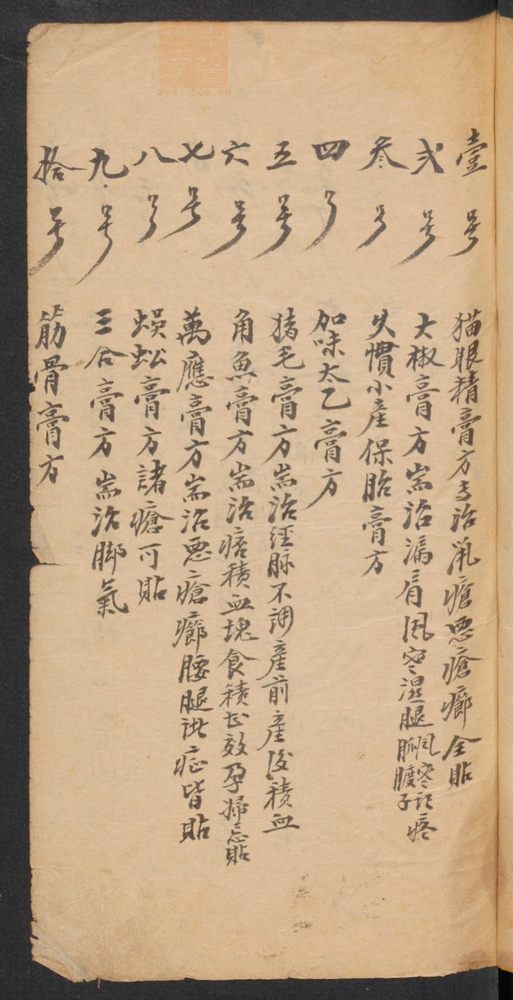 壹号 猫眼精膏方专治鼠瘡恶瘡癤仝貼
弍号 大椒膏方耑治漏肩風寒湿腿風寒 疼
叁号 久慣小産保胎膏方
四号 加味太乙膏方
五号 猪毛膏方耑治經脉不調産前産後積血
六号 角魚膏方耑治痞積血塊食積甚效孕婦忌貼
七号 萬應膏方耑治恶瘡癤腰腿 症皆貼
八号 蜈蚣膏方諸瘡可貼
九号 三合膏方耑治脚氣
拾号 筋骨膏方